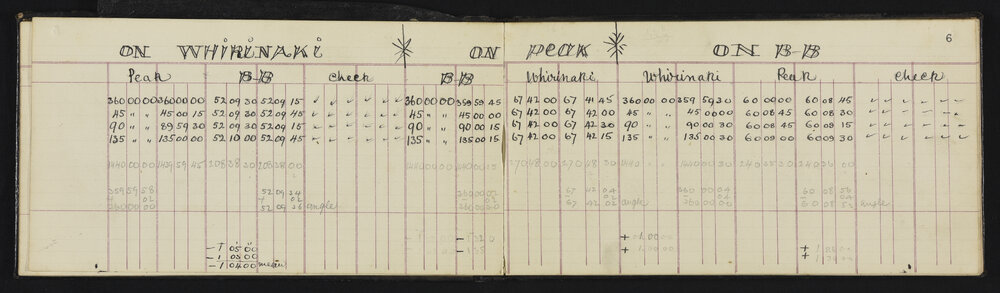 6
ON WHIRINAKI ON PEAK ON B-B
Peak B-B check B-B Whirinaki Whirinaki Peak check
360 00 00 360 00 00 52 09 30 52 09 15 ✓ ✓ ✓ ✓ ✓ 360 00 00 359 59 45 67 42 00 67 41 45 360 00 00 359 59 30 60 09 00 60 08 45 ✓ ✓ ✓ ✓ ✓
45 " " 45 00 15 52 09 30 52 09 45 ✓ ✓ ✓ ✓ ✓ 45 " " 45 00 00 67 42 00 67 42 00 45 " " 45 00 00 60 08 45 60 08 30 ✓ ✓ ✓
90 " " 89 59 30 52 09 30 52 09 15 ✓ ✓ ✓ ✓ ✓ 90 " " 90 00 15 67 42 00 67 42 30 90 " " 90 00 30 60 08 45 60 08 15 ✓ ✓ ✓ ✓ ✓
135 " " 135 00 00 52 10 00 52 09 45 ✓ ✓ ✓ ✓ 135 " " 135 00 15 67 42 00 67 42 15 135 " " 135 00 30 60 09 00 60 09 30 ✓ ✓ ✓ ✓ ✓
1439 59 45 208 38 30 208 38 00 270 48 00 270 48 30
359 59 58 52 09 34 360 00 02 67 42 04 360 00 04 60 08 56
02 02 02 02
360 00 00 52 09 36 angle 360 00 00 67 42 02 angle 360 00 00 angle
- 1 05 00
- 1 03 00
- 1 04 00 mean